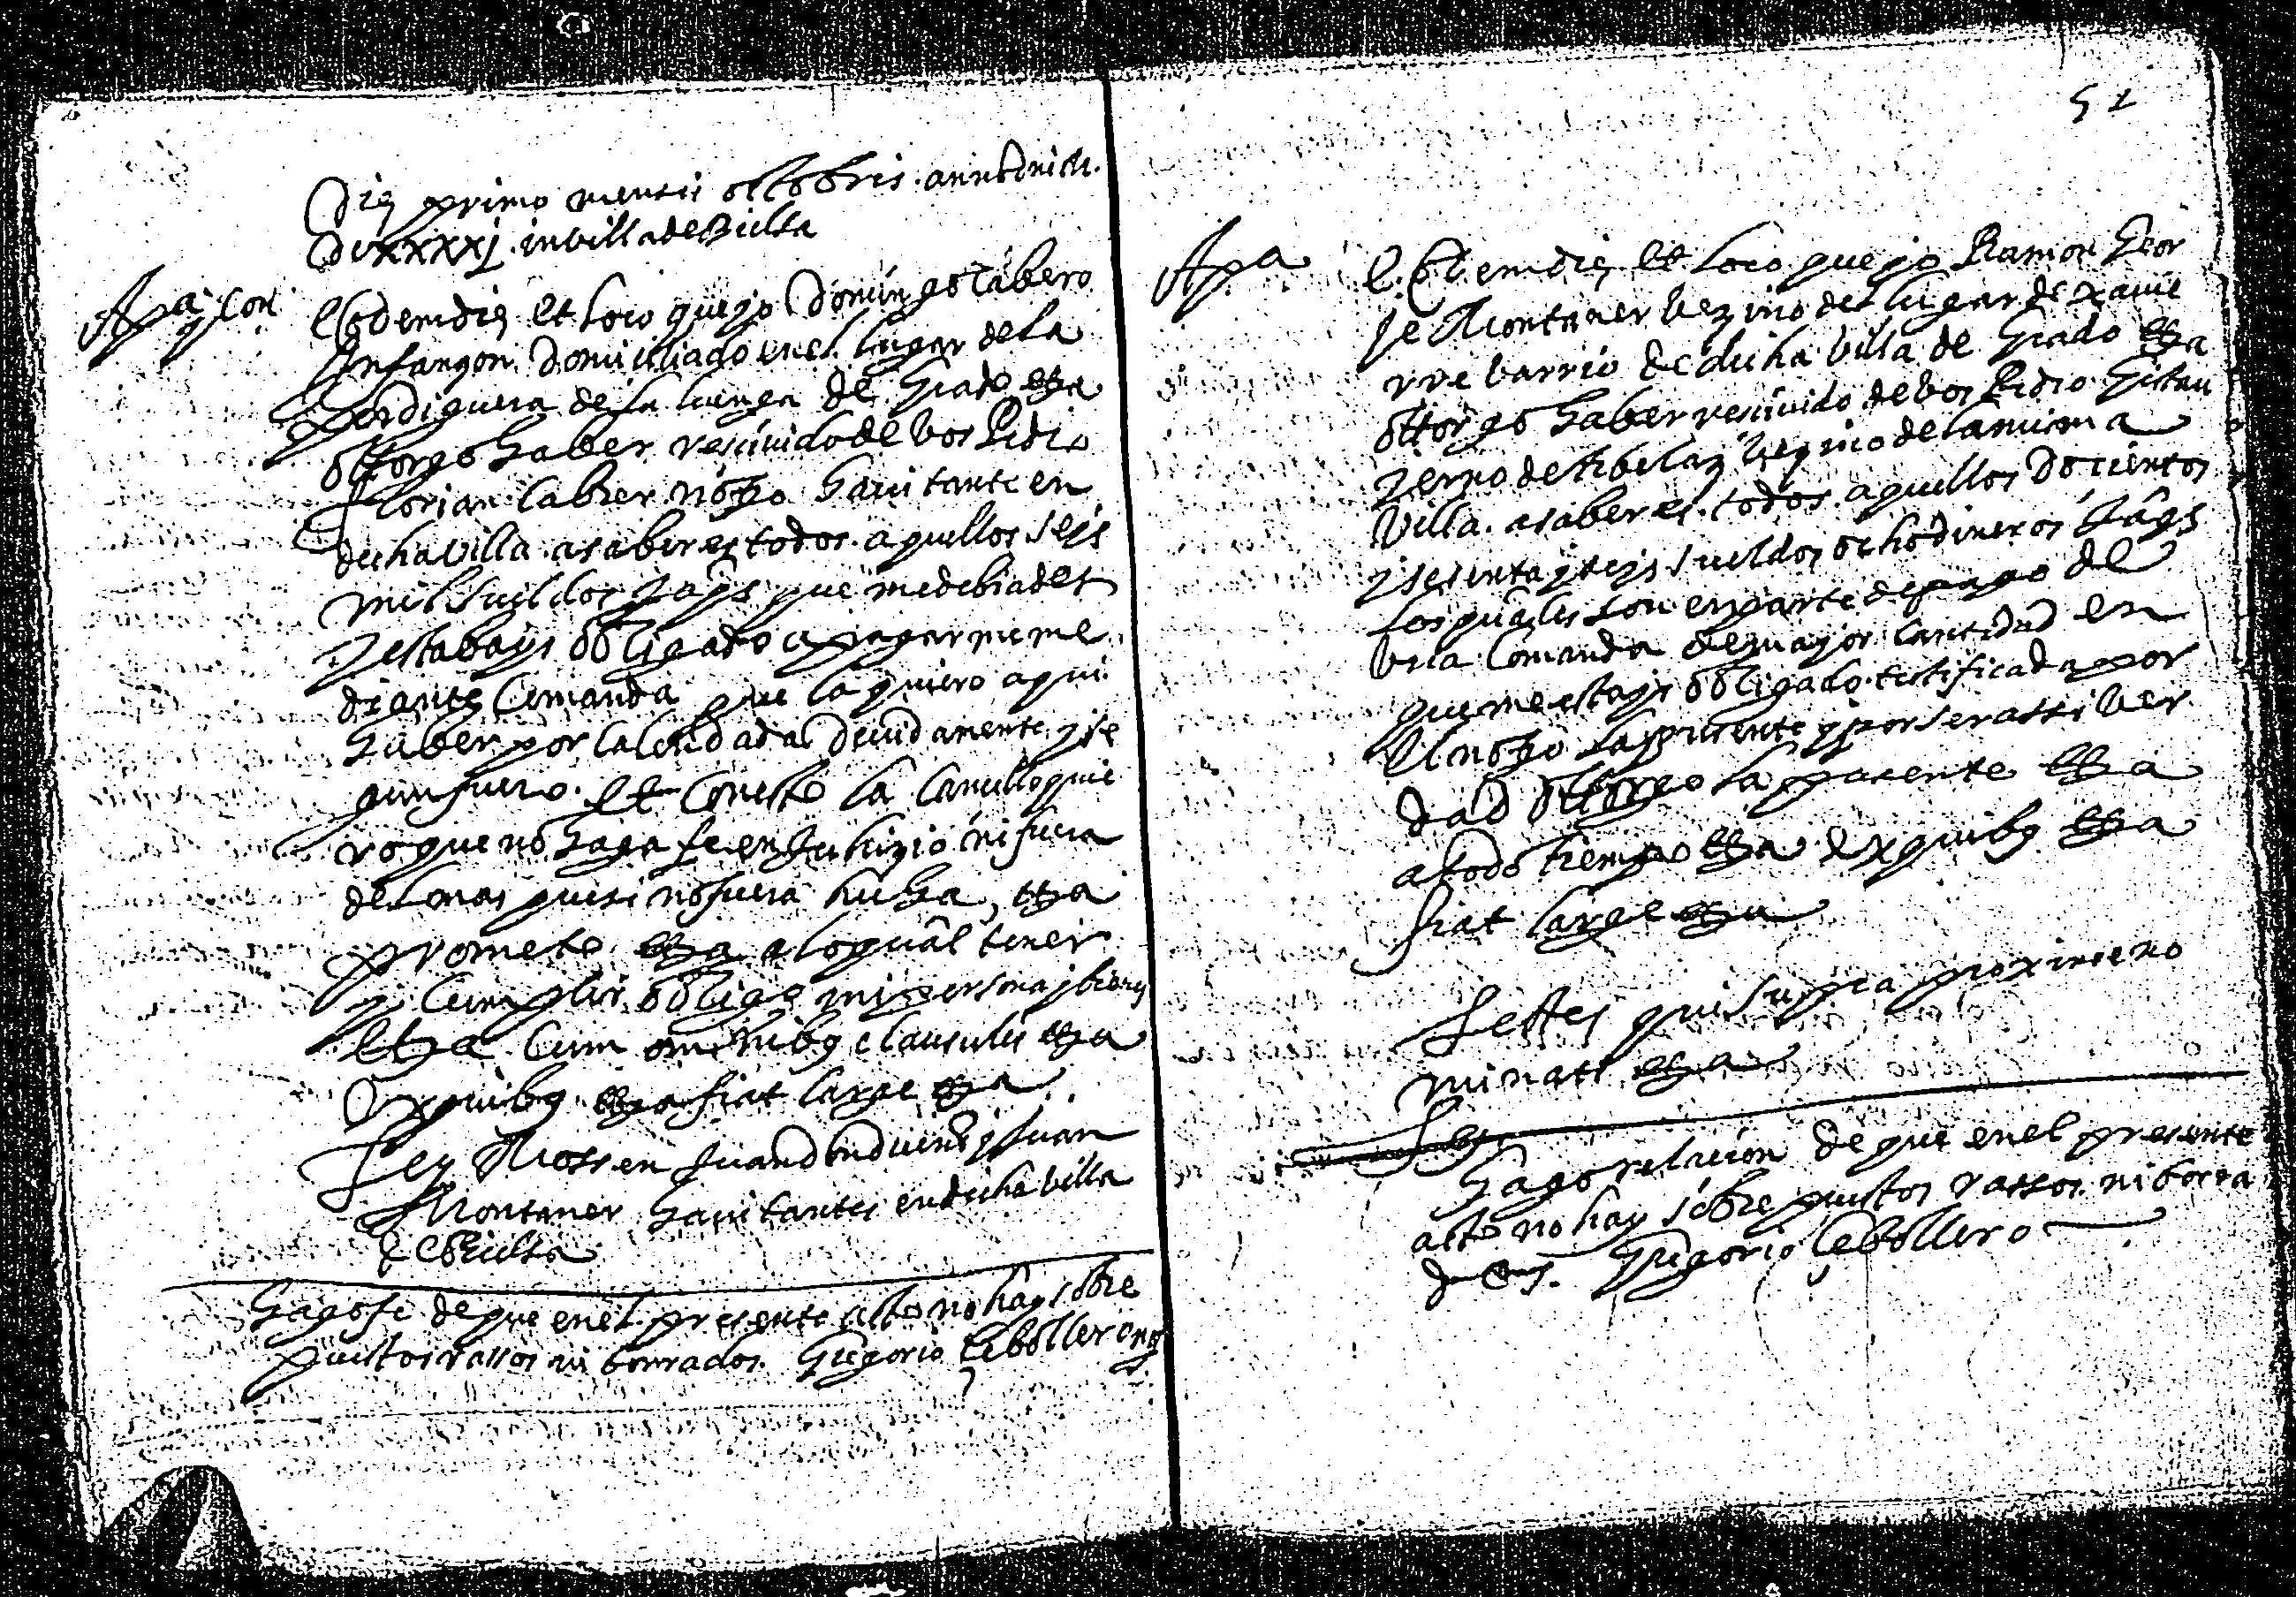 Die primo mensis octobris anno Dni M.
DCxxxxj. in villa de Bielsa
Apa y con
Eodem die et loco que yo Domingo Cabero
Infançon Domiciliado en el lugar de la
Perdiguera de la luenga de Grado etza
ottorgo haber rescivido de vos Pedro
Florian Cabrer nôtto havitante en
dicha villa a saber es todos aquellos seys
mil sueldos Jaqs que me debiades
y estabays obligado a pagarme me
diante Comanda que la quiero aqui
haber por calendada Devidamente y se
gun fuero. Et con esto la cancello quie
ro que no haga fe en Juhizio ni fuera
del mas que si no fuera hecha, etza
promete etza a lo qual tener
y cumplir obligo mi persona y bienes
etza cum omnibus clausulis etza
Ex quibus etza fiat large etza
Tes Mossen Juan y Juan
Montaner havitantes en dicha villa
de Bielsa
Hago fe de que en el presente acto no hay sobre
puestos rassos ni borrados. Gregorio Cebollero noto
51
Apa
Eodem die et loco que yo Ramon Geor
je Montaner vezino del lugar de xavie
rre barrio de dicha villa de Grado etza
ottorgo haber rescivido de vos Pedro Gistau
yerno de vezino de la misma
villa. a saber es. todos aquellos Docientos
y sesenta y seys sueldos ocho dineros Jaqs
los quales son en parte de pago de
una Comanda de mayor cantidad en
que me estays obligado. testificada por
el noto la presente y por ser assi ver
dad ottorgo la presente etza
a todo tiempo etza Ex quibus etza
fiat large etza
Testes qui supra proxime no
minati etza
Hago relacion de que en el presente
acto no hay sobre puestos rassos ni borra
dos. Gregorio Cebollero